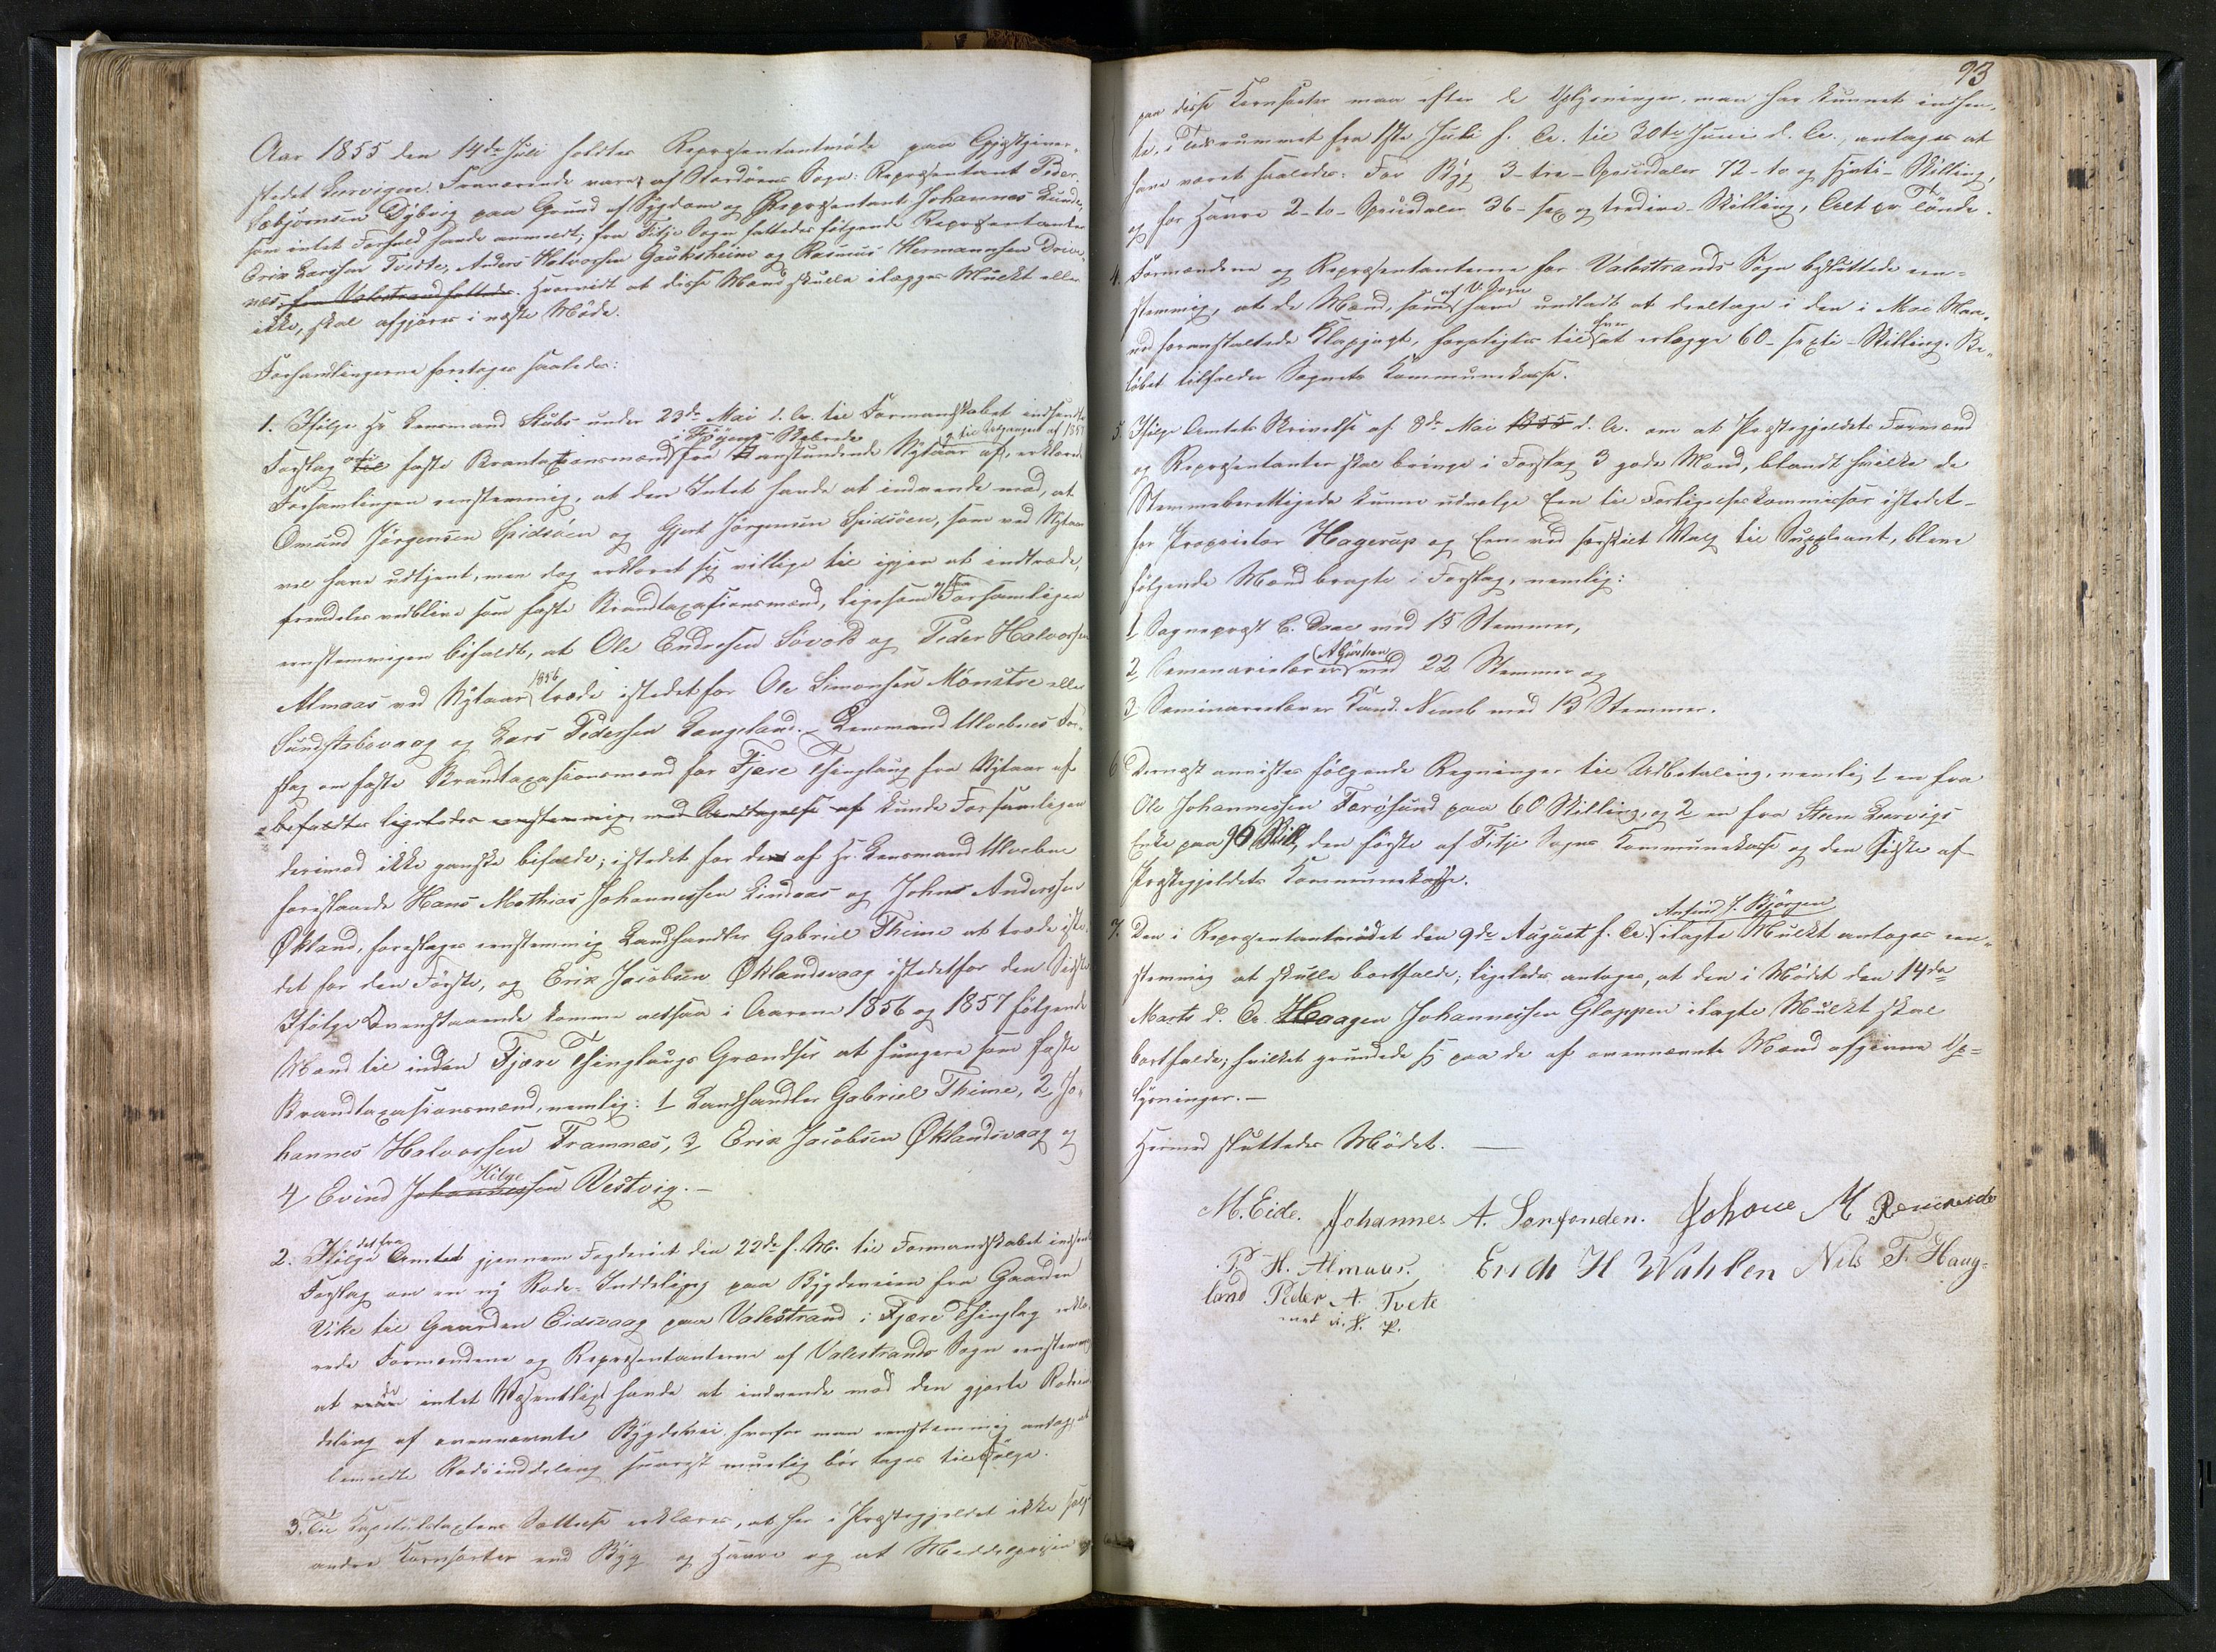 Aar 1855 den 14de Juli holdtes Repræsentantmøde paa Gjæstgiver-
stedet Lervigen. Fraværende vare af Stordøens Sogn: Repræsentant Peder
Esbjørnsen Dybvig paa Grund af Sygdom og Repræsentant Johannes Lunde,
som intet Forfald havde anmeldt; fra Fitje Sogn fattedes følgende Repræsentanter
Erik Larssen Tvedte, Anders Halvorsen Gauksheim og Rasmus Hermannsen Drive-
næs, fra Valestrand fattedes. Hvorvidt at disse Mænd skulle ilægges Mulkt eller
ikke, skal afgjøres i næste Møde.
Forhandlingerne foretoges saaledes:
1. Ifølge Hr. Lensmand Stubs under 23de Mai d. A. til Formandskabet indsendte
i Føyens Skibrede & til Udgangen af 1857
Forslag om til faste Brantaxtionsmænd fra anstundende Nytaar af, erklærede
Forsamlingen eenstemmig, at den Intet havde at indvende mod, at
Omund Jørgensen Spidsøen og Gjert Jørgensen Spidsøen, som ved Nytaar
vel have udtjent, men dog erklæret sig villige til igjen at indtræde,
fremdeles vedblive som faste Brandtaxasionsmænd, ligesom ogsaa Forsamligen
eenstemmigen bifaldt, at Ole Endresen Løvold og Peder Halvorsen
Almaas ved Nytaar 1856 træde istedetfor Ole Simonsen Monstre eller
Sundstabøvaag og Lars Pedersen Langeland. – Lensmand Ulvebnes For-
slag om faste Brandtaxasionsmænd for Fjære Thinglaug fra Nytaar af
befaldtes ligeledes eenstemmig med Undtagelse af kunde Forsamligen
derimod ikke ganske bifalde; istedet for den af Hr. Lensmand Ulvebne
foreslaaede Hans Mathias Johannessen Lindaas og Johns Anderssen
Økland, foreslages eenstemmig Landhandler Gabriel Thime at træde iste-
det for den Første, og Erik Jacobsen Øklandsvaag istedetfor den Sidste
Ifølge Ovenstaaende komme altsaa i Aarene 1856 og 1857 følgende
Mænd til inden Fjære Thinglaugs Grændser at fungere som faste
Brandtaxasionsmænd, nemlig: 1 Landhandler Gabriel Thime, 2, Jo-
hannes Halvorsen Tramnæs, 3 Erik Jacobsen Øklandsvaag og
Hilge
4 Evind Johannessen Vestvig. –
2. Ifølge det fra Amtet gjennem Fogderiet den 22de f. M. til Formandskabet indsendte
Forslag om en ny Rode-Inddeligng paa Bygdeveien fra Gaarden
Vike til Gaarden Eidsvaag paa Valestrand i Fjære Thinglag erklæ-
rede Formændene og Repræsentanterne af Valestrands Sogn eenstemmig
at de intet Væsentligt havde at indvende mod den gjorte Rodeind-
deling af ovennævnte Bygdevei, hvorfor man eenstemmig antog, at
bemeldte Rodeinddeling snarest muelig bør tages tilfølge.
3. Til Kapitelstaxtens Sættelse erklæres, at her i Præstegjeldet ikke sælges
andre Kornsorter end Byg og Havre og at Middelprisen
93
paa disse Kornsorter maa efter de Oplysninger, man har kunnet indhen-
te, i Tidsrummet fra 1ste Juli f. A. til 30te Juni d. A., antages at
have været saaledes: For Byg 3-tre-Speciedaler 72-to og sytti-Skilling,
og for Havre 2-to-Speciedaler 36-sex og tredive-Skilling, Alt pr Tønde.
4. Formændene og Repræsentanterne for Valestrands Sogn besluttede een-
stemmig, at de Mænd, som af V. Sogn have undladt at deeltage i den i Mai Maa-
ned foranstaltede Klapjagt, forpligtes til hver at erlægge 60-sexti-Skilling. Be-
løbet tilfalder Sognets Kommunekasse.
5. Ifølge Amtets Skrivelse af 8de Mai 1855 d. A. om at Præstegjeldets Formænd
og Repræsentanter skal bringe i Forslag 3 gode Mænd, blandt hvilke de
Stemmeberettigede kunne udvælge Een til Forligelseskommissær istedet-
for Proprietær Hagerup og Een ved særskilt Valg til Suppleant, bleve
følgende Mænd bragte i Forslag, nemlig:
1 Sognepræst C. Daae med 15 Stemmer,
2 Semenarielærer A Gjørtsen med 22 Stemmer og
3 Seminarielærer Kand. Nemb med 13 Stemmer.
6 Dernæst anvistes følgende Regninger til Udbetaling, nemlig 1 en fra
Ole Johannessen Færøsund paa 60 Skilling, og 2 en fra Steen Lervigs
Enke paa 90 Skill, den første af Fitje Sogns Kommunekasse og den Sidste af
Præstegjeldets Kommunekasse.
Anfind J. Bjørgen
7. Den i Repræsentantmødet den 9de August f. A. ilagte Mulkt antoges een-
stemmig at skulle bortfalde; ligeledes antoges, at den i Mødet den 14de
Marts d. A. Haagen Johannessen Gloppen ilagte Mulkt skal
bortfalde; hvilket grundede sig paa de af ovennævnte Mænd afgivne Op-
lysninger. –
Hermed sluttedes Mødet. –
M. Eide. Johannes A. Sørfonden. Johane M Remereide
P. H. Almaas. Erich H Wahlen Nils T. Haug-
land Peder A. Tvete
med i. H. P.